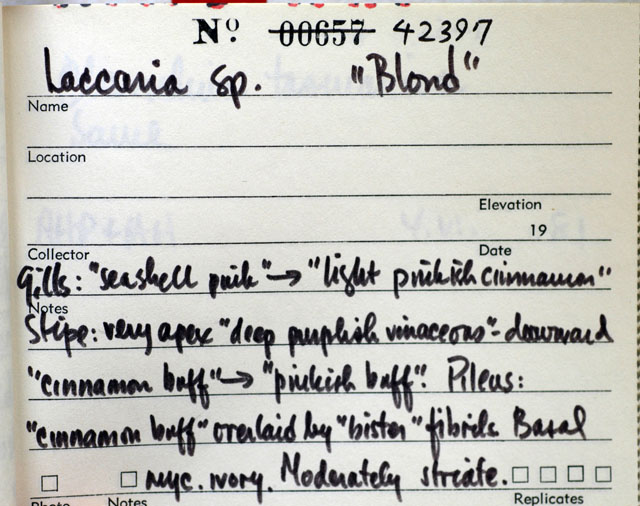 Nº 00657 42397
Laccaria sp. "Blond"
Name
Location
Elevation
19
Collector Date
Gills: "seashell pink" → "light pinkish cinnamon"
Notes
Stipe: very apex "deep purplish vinaceous" - downward
"cinnamon buff" → "pinkish buff". Pileus:
"cinnamon buff" overlaid by "bister" fibrils Basal
myc. ivory. Moderately striate.
Photo Notes Replicates